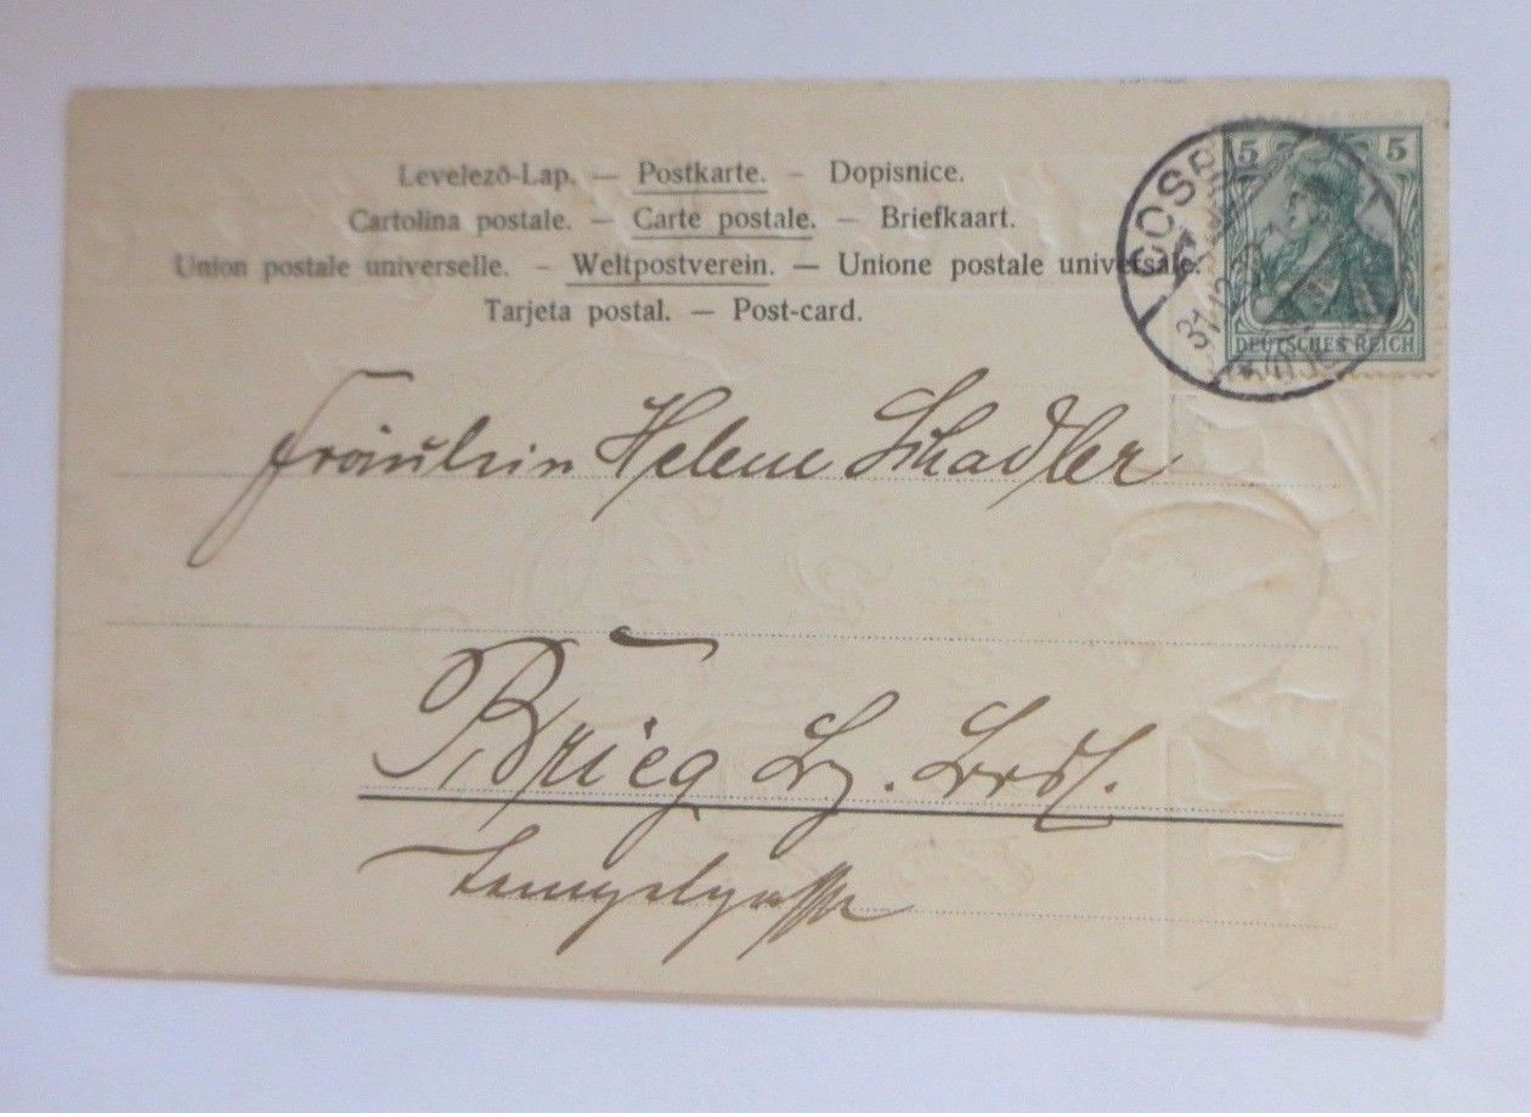 Levelező-Lap. — Postkarte. — Dopisnice.
Cartolina postale. — Carte postale. — Briefkaart.
Union postale universelle. — Weltpostverein. — Unione postale universale.
Tarjeta postal. — Post-card.
5 5
DEUTSCHES REICH
COSE
31.12.
Fräulein Helene Schadler
Brieg Bz. Bresl.
Tempelgasse